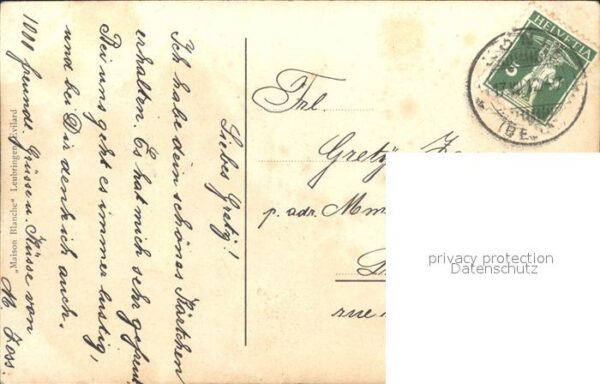 Liebes Gretig!
Ich habe dein schönes Kärtchen
erhalten. Es hat mich sehr gefreut
Bei uns geht es immer lustig,
und bei Dir denk ich auch.
1000 freundl. Grüsse u. Küsse von
M. Zoss.
"Maison Blanche" Leubringen-Evilard
HELVETIA
Frl.
Gretig Z
p. adr. Mm
rue
(BE
privacy protection
Datenschutz